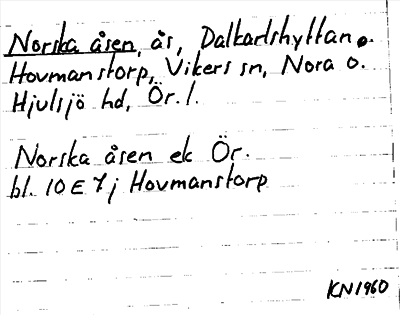 Norska åsen, ås, Dalkarlshyttan o.
Hovmanstorp, Vikers sn, Nora o.
Hjulsjö hd, Ör. l.
Norska åsen ek Ör.
bl. 10 E 7 j Hovmanstorp
KN1960